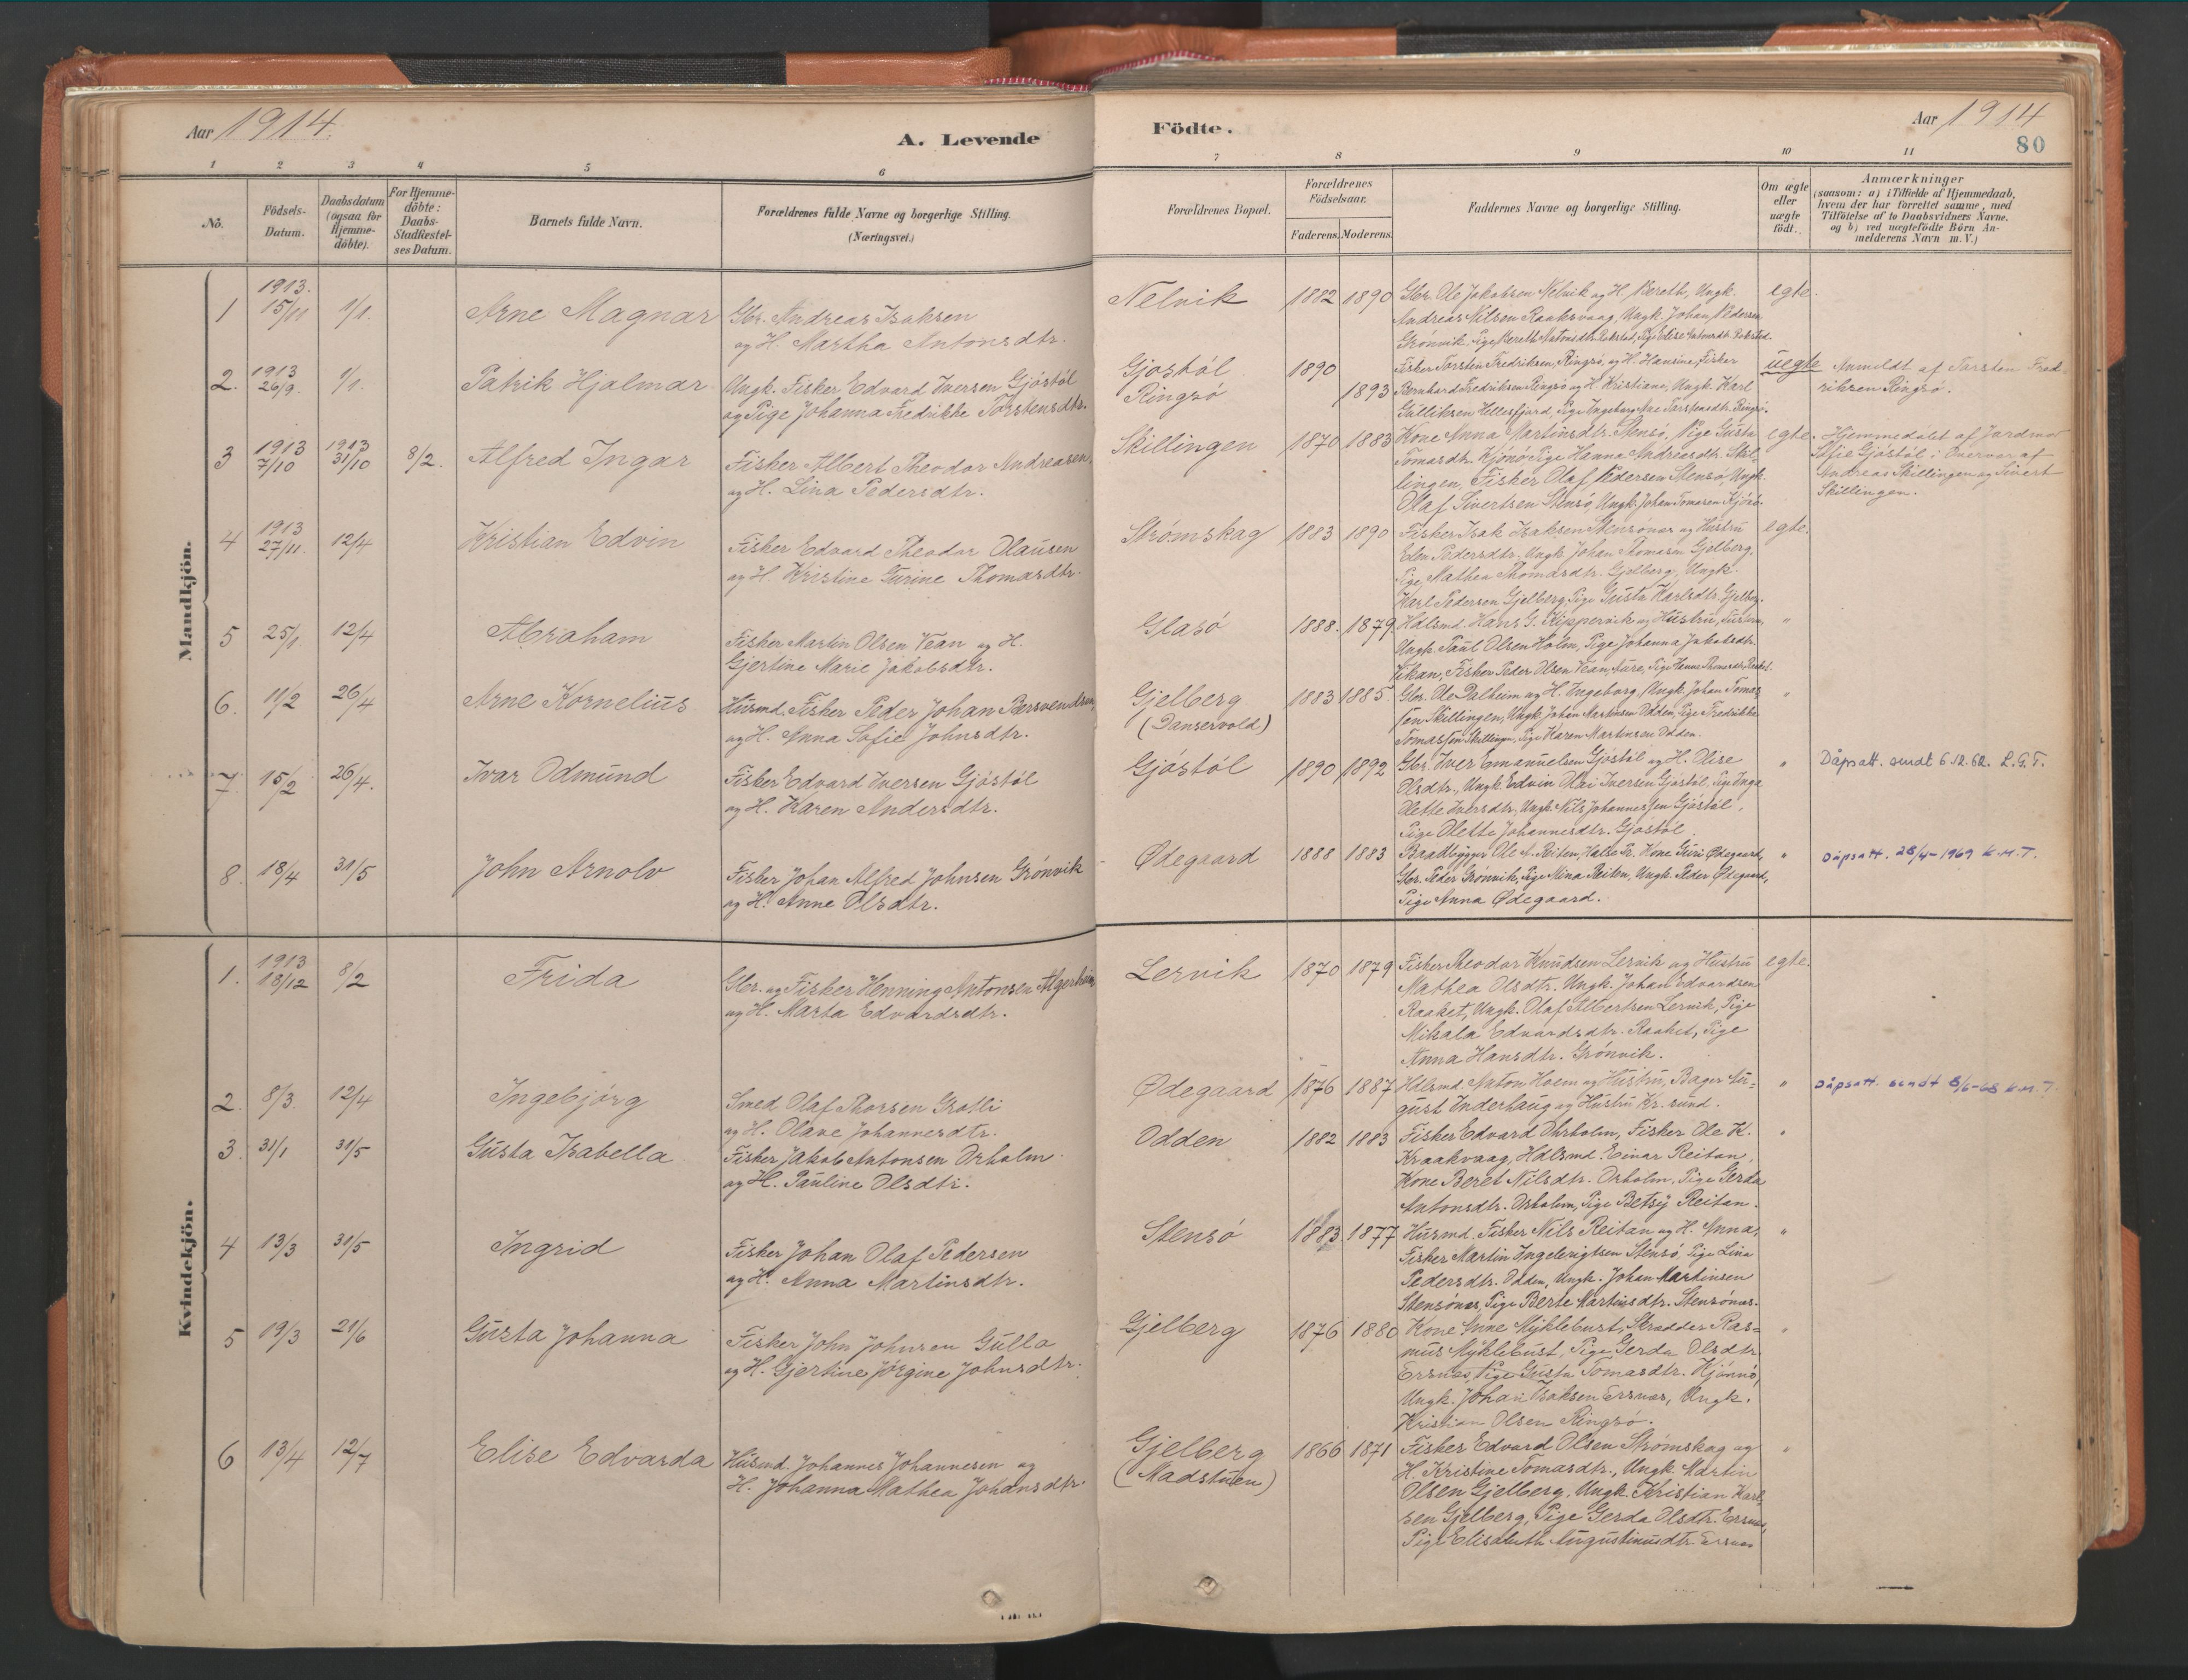 Aar 1914.
A. Levende
Födte.
Aar 1914
80
1 2 3 4 5 6 7 8 9 10 11
No.
Födsels-
Datum.
Daabsdatum
(ogsaa for
Hjemme-
döbte).
For Hjemme-
döbte:
Daabs-
Stadfæstel-
ses Datum.
Barnets fulde Navn.
Forældrenes fulde Navne og borgerlige Stilling.
(Næringsvei.)
Forældrenes Bopæl.
Forældrenes
Födselsaar.
Faderens. Moderens.
Faddernes Navne og borgerlige Stilling.
Om ægte
eller
uægte
födt.
Anmærkninger
(saasom: a) i Tilfælde af Hjemmedaab,
hvem der har forrettet samme, med
Tilföielse af to Daabsvidners Navne.
og b) ved uægtefödte Börn An-
melderens Navn m. V.)
Mandkjön.
1 1913. 15/11 1/1. Arne Magnar
Gbr. Andreas Isaksen
og H. Martha Antonsdtr.
Nelvik 1882 1890
Gbr. Ole Jakobsen Nelvik og H. Bereth, Ungk.
Andreas Nilsen Raaksvaag, Ungk. Johan Pedersen
Grönvik, Pige Mereth Antonsdtr.
egte.
2. 1913 26/9. 1/1. Patrik Hjalmar
Ungk. Fisker Edvard Iversen Gjöstöl
og Pige Johanna Fredrikke Torstensdtr.
Gjöstöl 1890
Ringsö 1893
Fisker Torsten Fredriksen, Ringsö, og H. Hansine, Fisker
Bernhard Fredriksen Ringsö og H. Kristiane, Ungk. Karl
Gulliksen Hellesfjord, Pige Ingeborg Ane Torstensdtr. Ringsö.
uegte
Anmeldt af Torsten Fred-
riksen Ringsö.
3 1913 7/10 1913 31/10 8/2. Alfred Ingar
Fisker Albert Theodor Andreasen
og H. Lina Pedersdtr.
Skillingen 1870 1883
Kone Anna Martinsdtr. Stensö, Pige Gusta
Tomasdtr. Kjönö, Pige Hanna Andreasdtr. Skil-
lingen, Fisker Olaf Pedersen Stensö, Ungk.
Olaf Sivertsen Stensö, Ungk. Johan Tomasen Kjönö.
egte.
Hjemmedöbt af Jordmor
Sofie Gjöstöl i Overvær af
Andreas Skillingen og Sivert
Skillingen.
4 1913 27/11. 12/4 Kristian Edvin
Fisker Edvard Theodor Olausen
og H. Kristine Gurine Thomasdtr.
Strømskag 1883 1890
Fisker Isak Isaksen Stensönes og Hustru
Elen Pedersdtr. Ungk. Johan Thomasen Gjelberg,
Pige Mathea Thomasdtr. Gjelberg, Ungk.
Karl Pedersen Gjelberg, Pige Gusta Karlsdtr. Gjelberg.
egte.
5 25/1 12/4 Abraham
Fisker Martin Olsen Vean og H.
Gjertine Marie Jakobsdtr.
Glasö 1888. 1879.
Hdlsmd. Hans G. Kippervik og Hustru,
Ungk. Paul Olsen Holm, Pige Johanna Jakobsdtr.
Vikan, Fisker Peder Olsen Vean, Aure, Pige Hanna
"
6. 11/2 26/4 Arne Kornelius
Husmd. Fisker Peder Johan Bersvendsen
og H. Anna Sofie Johnsdtr.
Gjelberg 1883 1885.
(Danservold)
Gbr. Ole Dalheim og H. Ingeborg, Ungk. Johan Tomas-
sen Skillingen, Ungk. Johan Martinsen Odden, Pige Fredrikke
Tomassen Skillingen, Pige Karen Martinsen Odden.
"
7. 15/2 26/4. Ivar Odmund
Fisker Edvard Iversen Gjöstöl
og H. Karen Andersdtr.
Gjöstöl 1890 1892
Gbr. Iver Emanuelsen Gjöstöl og H. Olise
Olsdtr., Ungk. Edvin Olai Iversen Gjöstöl, Pige Inga
Olette Iversdtr, Ungk. Nils Johannessen Gjöstöl,
Pige Olette Johannesdtr. Gjöstöl.
"
Dåpsatt. sendt 6.12.62. L.G.T.
8. 18/4 31/5 John Arnolv
Fisker Johan Alfred Johnsen Grönvik
og H. Anne Olsdtr.
Ødegaard 1888 1883
Baadbygger Ole A. Reiten, Halse Pr. Kone Guri Ødegaard,
Gbr. Peder Grönvik, Pige Nina Reiten, Ungk. Peder Ødegaard,
Pige Anna Ødegaard.
"
Dåpsatt. 28/4-1969 K.M.T.
Kvindekjön.
1. 1913 18/12 8/2 Frida
Gbr. og Fisker Henning Antonsen Algerheim
og H. Marta Edvardsdtr.
Lervik 1870 1879
Fisker Theodor Knudsen Lervik og Hustru
Mathea Olsdtr. Ungk. Johan Edvardsen
Raaket, Ungk. Olaf Albertsen Lervik, Pige
Mikala Edvardsdtr. Raaket, Pige
Anna Hansdtr. Grönvik.
egte.
2. 8/3. 12/4 Ingebjörg
Smed Olaf Thorsen Grotli
og H. Olave Johannesdtr.
Ødegaard 1876 1887
Hdlsmd. Anton Hoem og Hustru, Bager Au-
gust Inderhaug og Hustru Kr. sund.
"
Dåpsatt. sendt 8/6-68 K.M.T.
3. 31/1 31/5 Gusta Isabella
Fisker Jakob Antonsen Orholm
og H. Pauline Olsdtr.
Odden 1882 1883
Fisker Edvard Ohrholm, Fisker Ole K.
Kraakvaag, Hdlsmd. Einar Reitan,
Kone Beret Nilsdtr. Orholm, Pige Gerda
Antonsdtr. Orholm, Pige Betsy Reitan.
"
4 13/3 31/5 Ingrid
Fisker Johan Olaf Pedersen
og H. Anna Martinsdtr.
Stensö 1883. 1877
Husmd. Fisker Nils Reitan og H. Anna,
Fisker Martin Ingebrigtsen Stensö, Pige Lina
Pedersdtr. Odden, Ungk. Johan Martinsen
Stensönes, Pige Berte Martinsdtr. Stensönes.
"
5 19/3 21/6 Gusta Johanna
Fisker John Johnsen Gulla
og H. Gjertine Jørgine Johnsdtr.
Gjelberg 1876 1880
Kone Anne Myklebust, Skrædder Ras-
mus Myklebust, Pige Gerda Olsdtr.
Ersnes, Pige Gusta Tomasdtr. Kjönnö,
Ungk. Johan Isaksen Ersnes, Ungk.
Kristian Olsen Ringsö.
"
6 13/4 12/7 Elise Edvarda
Husmd. Johannes Johannesen og
H. Johanna Mathea Johansdtr.
Gjelberg 1866 1871
(Madstuen)
Fisker Edvard Olsen Strømskag og
H. Kristine Tomasdtr., Ungk. Martin
Olsen Gjelberg, Ungk. Kristian Karl-
sen Gjelberg, Pige Gerda Olsdtr. Ersnes,
Pige Elisabeth Augustinusdtr. Ersnes
"